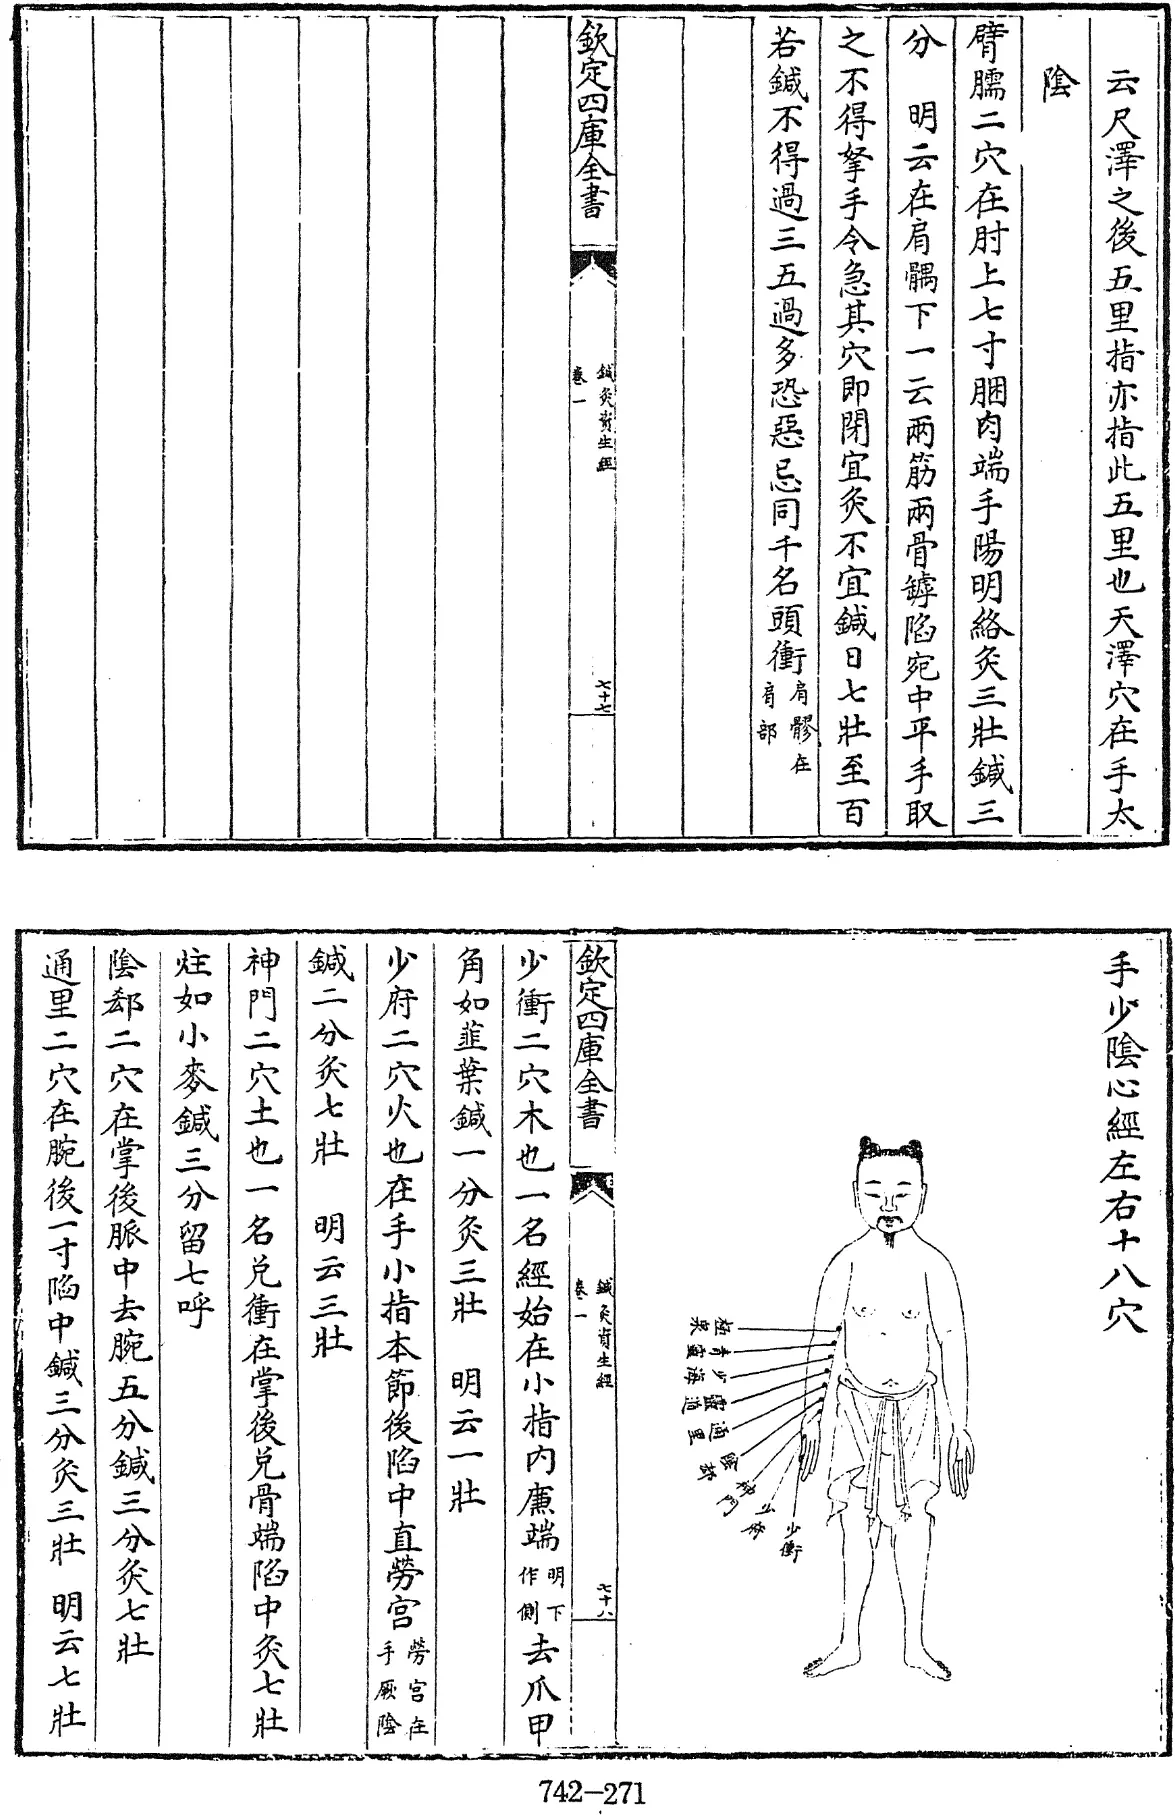 云尺澤之後五里指亦指此五里也天澤穴在手太
陰
臂臑二穴在肘上七寸䐃肉端手陽明絡灸三壯鍼三
分　明云在肩髃下一云兩筋兩骨罅陷宛中平手取
之不得拏手令急其穴即閉宜灸不宜鍼日七壯至百
若鍼不得過三五過多恐惡忌同千名頭衝肩髎在肩部
欽定四庫全書
鍼灸資生經
卷一
七十七
手少陰心經左右十八穴
極泉
青靈
少海
靈道
通里
陰郄
神門
少府
少衝
欽定四庫全書
鍼灸資生經
卷一
七十八
少衝二穴木也一名經始在小指內廉端明下作側去爪甲
角如韮葉鍼一分灸三壯　明云一壯
少府二穴火也在手小指本節後陷中直勞宫勞宫在手厥陰
鍼二分灸七壯　明云三壯
神門二穴土也一名兌衝在掌後兌骨端陷中灸七壯
炷如小麥鍼三分留七呼
陰郄二穴在掌後脈中去腕五分鍼三分灸七壯
通里二穴在腕後一寸陷中鍼三分灸三壯　明云七壯
742-271